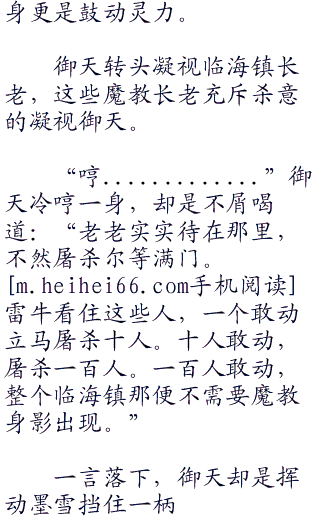 身更是鼓动灵力。
御天转头凝视临海镇长
老，这些魔教长老充斥杀意
的凝视御天。
“哼.............”御
天冷哼一身，却是不屑喝
道：“老老实实待在那里，
不然屠杀尔等满门。
[m.heihei66.com手机阅读]
雷牛看住这些人，一个敢动
立马屠杀十人。十人敢动，
屠杀一百人。一百人敢动，
整个临海镇那便不需要魔教
身影出现。”
一言落下，御天却是挥
动墨雪挡住一柄